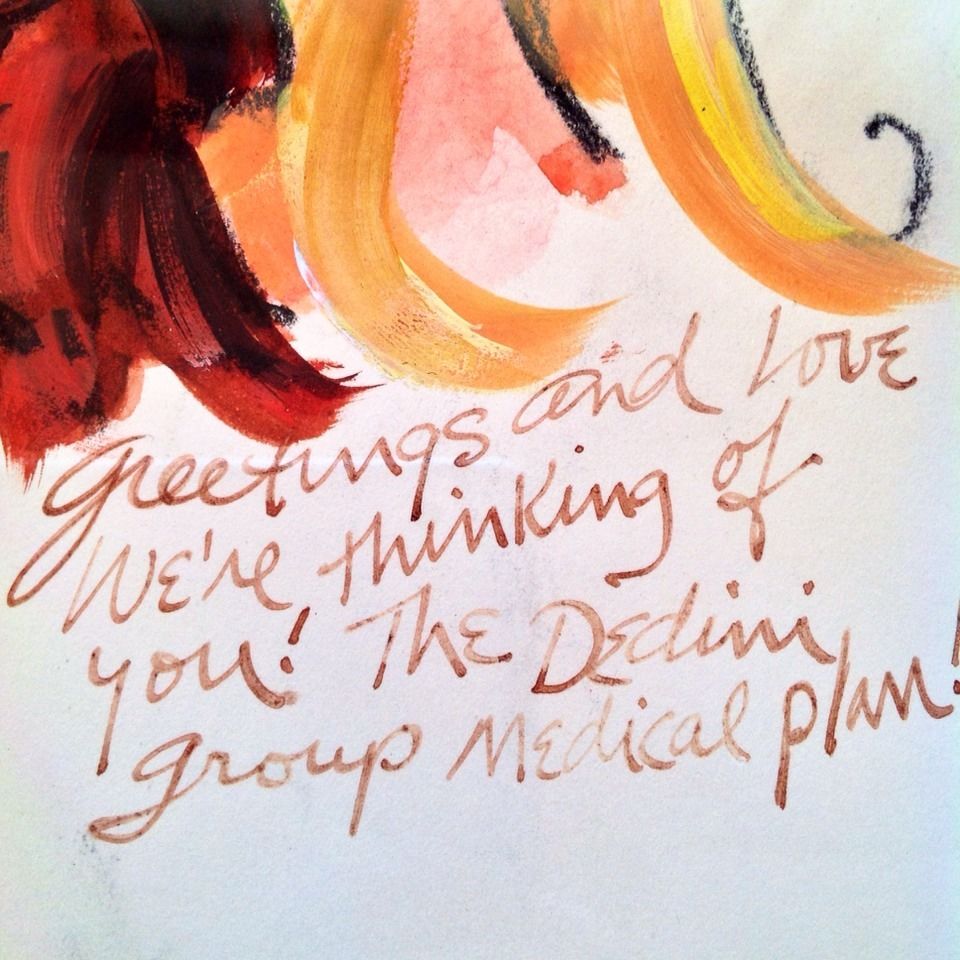 Greetings and Love
We're thinking of
you! The Dedini
group Medical plan!